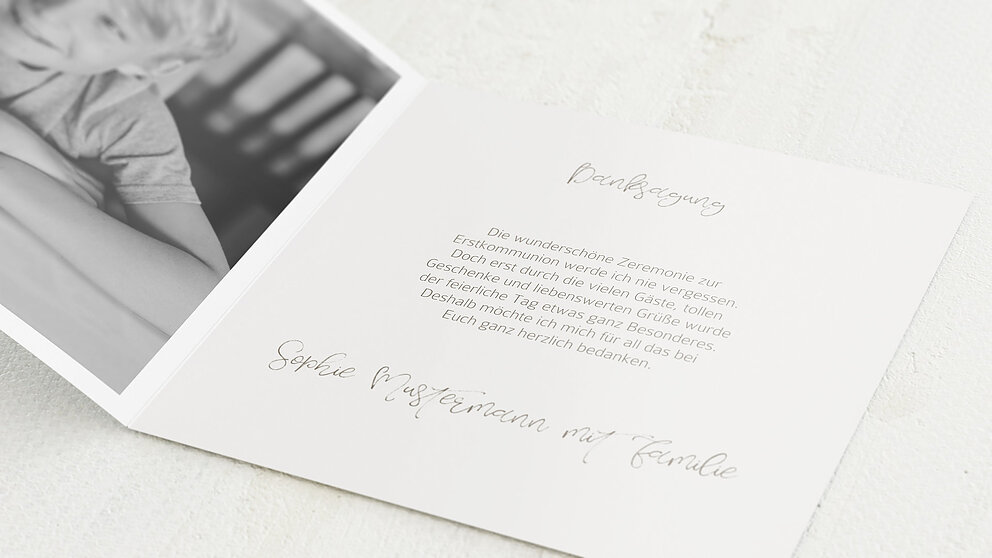 Danksagung
Die wunderschöne Zeremonie zur
Erstkommunion werde ich nie vergessen.
Doch erst durch die vielen Gäste, tollen
Geschenke und liebenswerten Grüße wurde
der feierliche Tag etwas ganz Besonderes.
Deshalb möchte ich mich für all das bei
Euch ganz herzlich bedanken.
Sophie Mustermann mit Familie